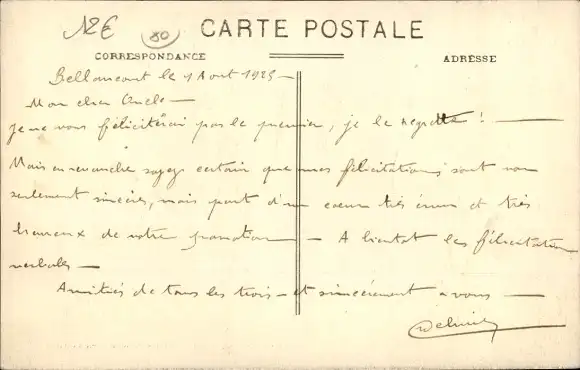 NZE 80
CARTE POSTALE
CORRESPONDANCE
ADRESSE
Bellancourt le 1 Aout 1925 —
Mon cher Oncle —
Je ne vous féliciterai pas le premier, je le regrette ! —
Mais en revanche soyez certain que mes félicitations, sont non
seulement sincères, mais part d'un coeur très ému et très
heureux de votre promotion — A bientot les félicitations
verbales —
Amitiés de tous les trois — et sincèrement à vous —